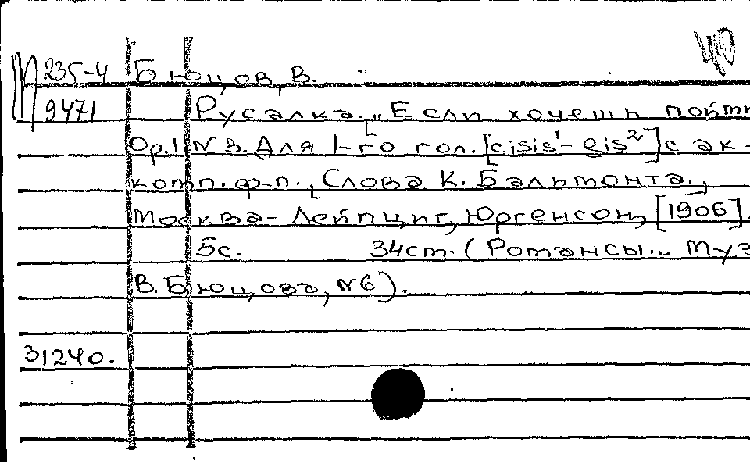 40
М 235-4 Бюцов, В.
9471 Русалка. „Если хочешь пойти
Ор.1 №3. Для 1-го гол. [cisis¹-gis²] с ак-
комп. ф-п., Слова К. Бальмонта.,
Москва-Лейпциг, Юргенсон, [1906]
5с. 34ст. (Романсы... Муз
В. Бюцова, №6).
31240.